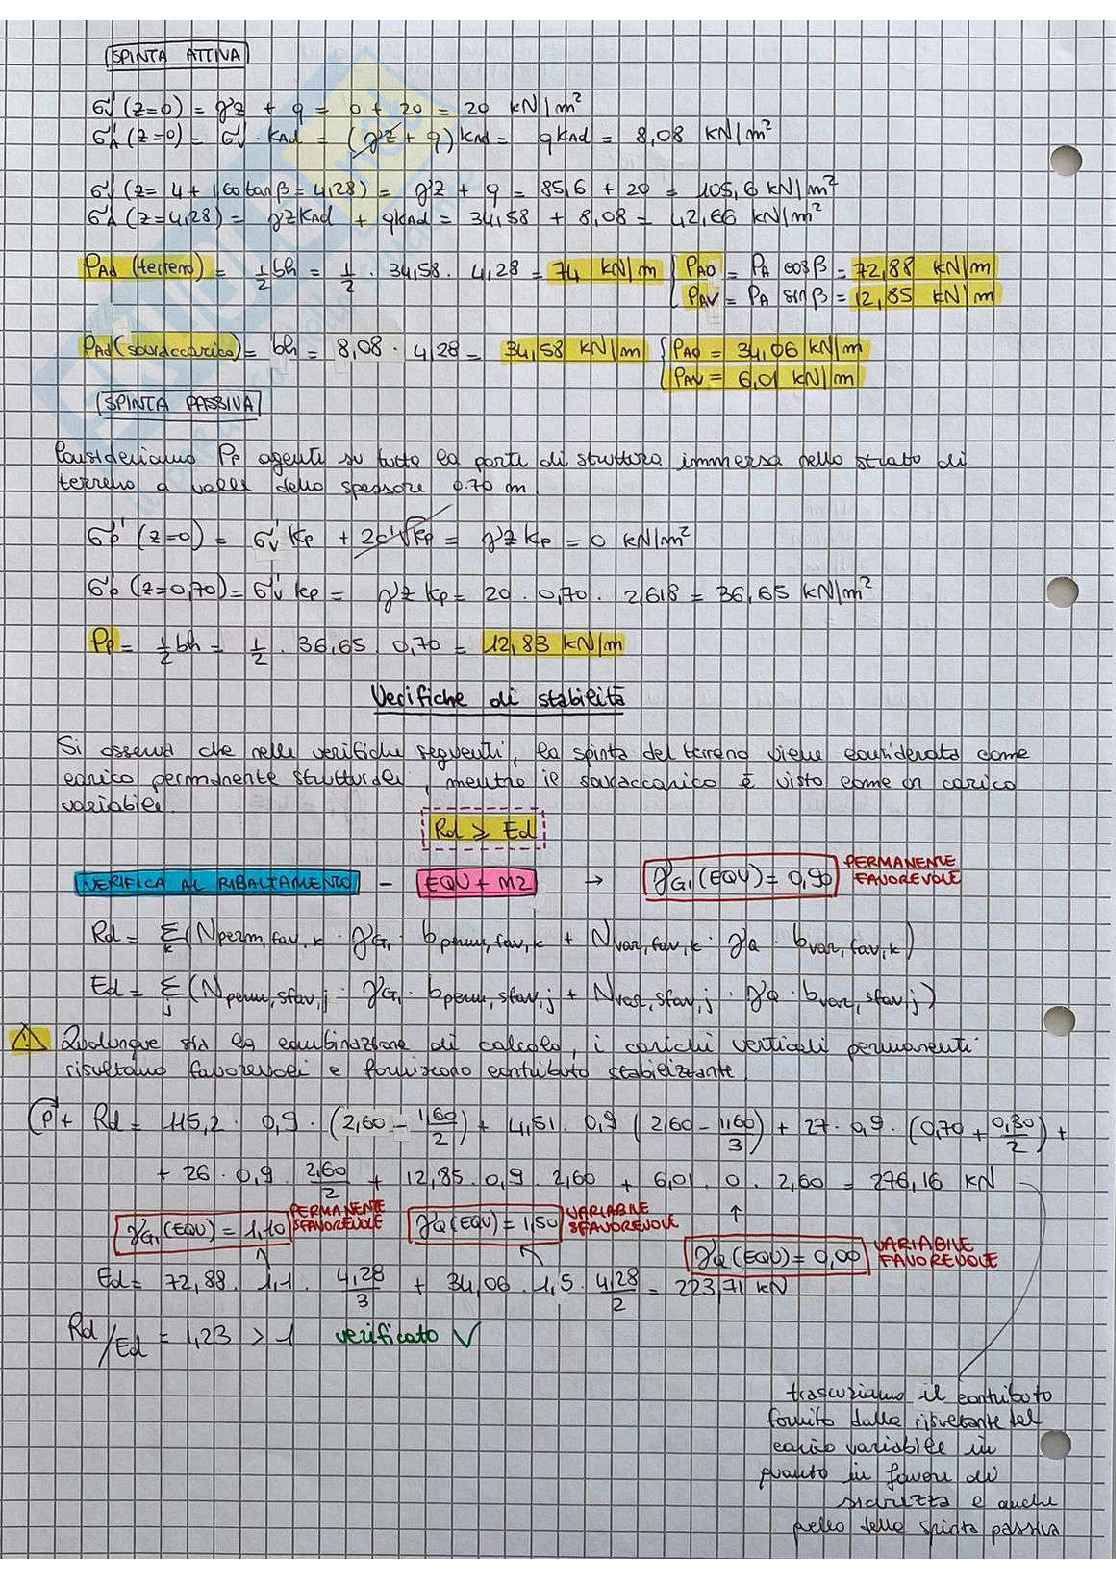 SPINTA ATTIVA
σv' (z=0) = γ'z + q = 0 + 20 = 20 kN/m²
σh' (z=0) = σv' · KAd = (γ'z + q) KAd = qKAd = 8,08 kN/m²
σv' (z= 4 + 1,60 tanβ = 4,28) = γ'z + q = 85,6 + 20 = 105,6 kN/m²
σh' (z=4,28) = γ'z KAd + qKAd = 34,58 + 8,08 = 42,66 kN/m²
PAd (terreno) = 1/2 bh = 1/2 · 34,58 · 4,28 = 74 kN/m { PAO = PA cosβ = 72,88 kN/m
PAV = PA sinβ = 12,85 kN/m
PAd (sovraccarico) = bh = 8,08 · 4,28 = 34,58 kN/m { PAO = 34,06 kN/m
PAV = 6,01 kN/m
SPINTA PASSIVA
Consideriamo Pp agente su tutta la parte di struttura immersa nello strato di
terreno a valle dello spessore 0.70 m
σp' (z=0) = σv' Kp + 2c'√Kp = γ'z Kp = 0 kN/m²
σp' (z=0,70) = σv' Kp = γ'z Kp = 20 · 0,70 · 2618 = 36,65 kN/m²
Pp = 1/2 bh = 1/2 · 36,65 · 0,70 = 12,83 kN/m
Verifiche di stabilità
Si osserva che nelle verifiche seguenti, la spinta del terreno viene considerata come
carico permanente strutturale, mentre il sovraccarico è visto come un carico
variabile.
Rd ≥ Ed
VERIFICA AL RIBALTAMENTO - EQU + M2 → γG1 (EQU) = 0,90 PERMANENTE FAVOREVOLE
Rd = Σk (Nperm,fav,k · γG1 · bperm,fav,k + Nvar,fav,k · γQ · bvar,fav,k)
Ed = Σj (Nperm,sfav,j · γG1 · bperm,sfav,j + Nvar,sfav,j · γQ · bvar,sfav,j)
⚠ Qualunque sia la combinazione di calcolo, i carichi verticali permanenti
risultano favorevoli e forniscono contributo stabilizzante
P+ Rd = 115,2 · 0,9 · (2,60 - 1,60/2) + 4,51 · 0,9 (2,60 - 1,60/3) + 27 · 0,9 · (0,70 + 0,30/2) +
+ 26 · 0,9 · 2,60/2 + 12,85 · 0,9 · 2,60 + 6,01 · 0 · 2,60 = 276,16 kN
γG1 (EQU) = 1,10 PERMANENTE SFAVOREVOLE γQ (EQU) = 1,50 VARIABILE SFAVOREVOLE ↑
γQ (EQU) = 0,00 VARIABILE FAVOREVOLE
Ed = 72,88 · 1,1 · 4,28/3 + 34,06 · 1,5 · 4,28/2 = 223,71 kN
Rd/Ed = 1,23 > 1 verificato √
trascuriamo il contributo
fornito dalla risultante del
carico variabile in
quanto in favore di
sicurezza e anche
quello della spinta passiva